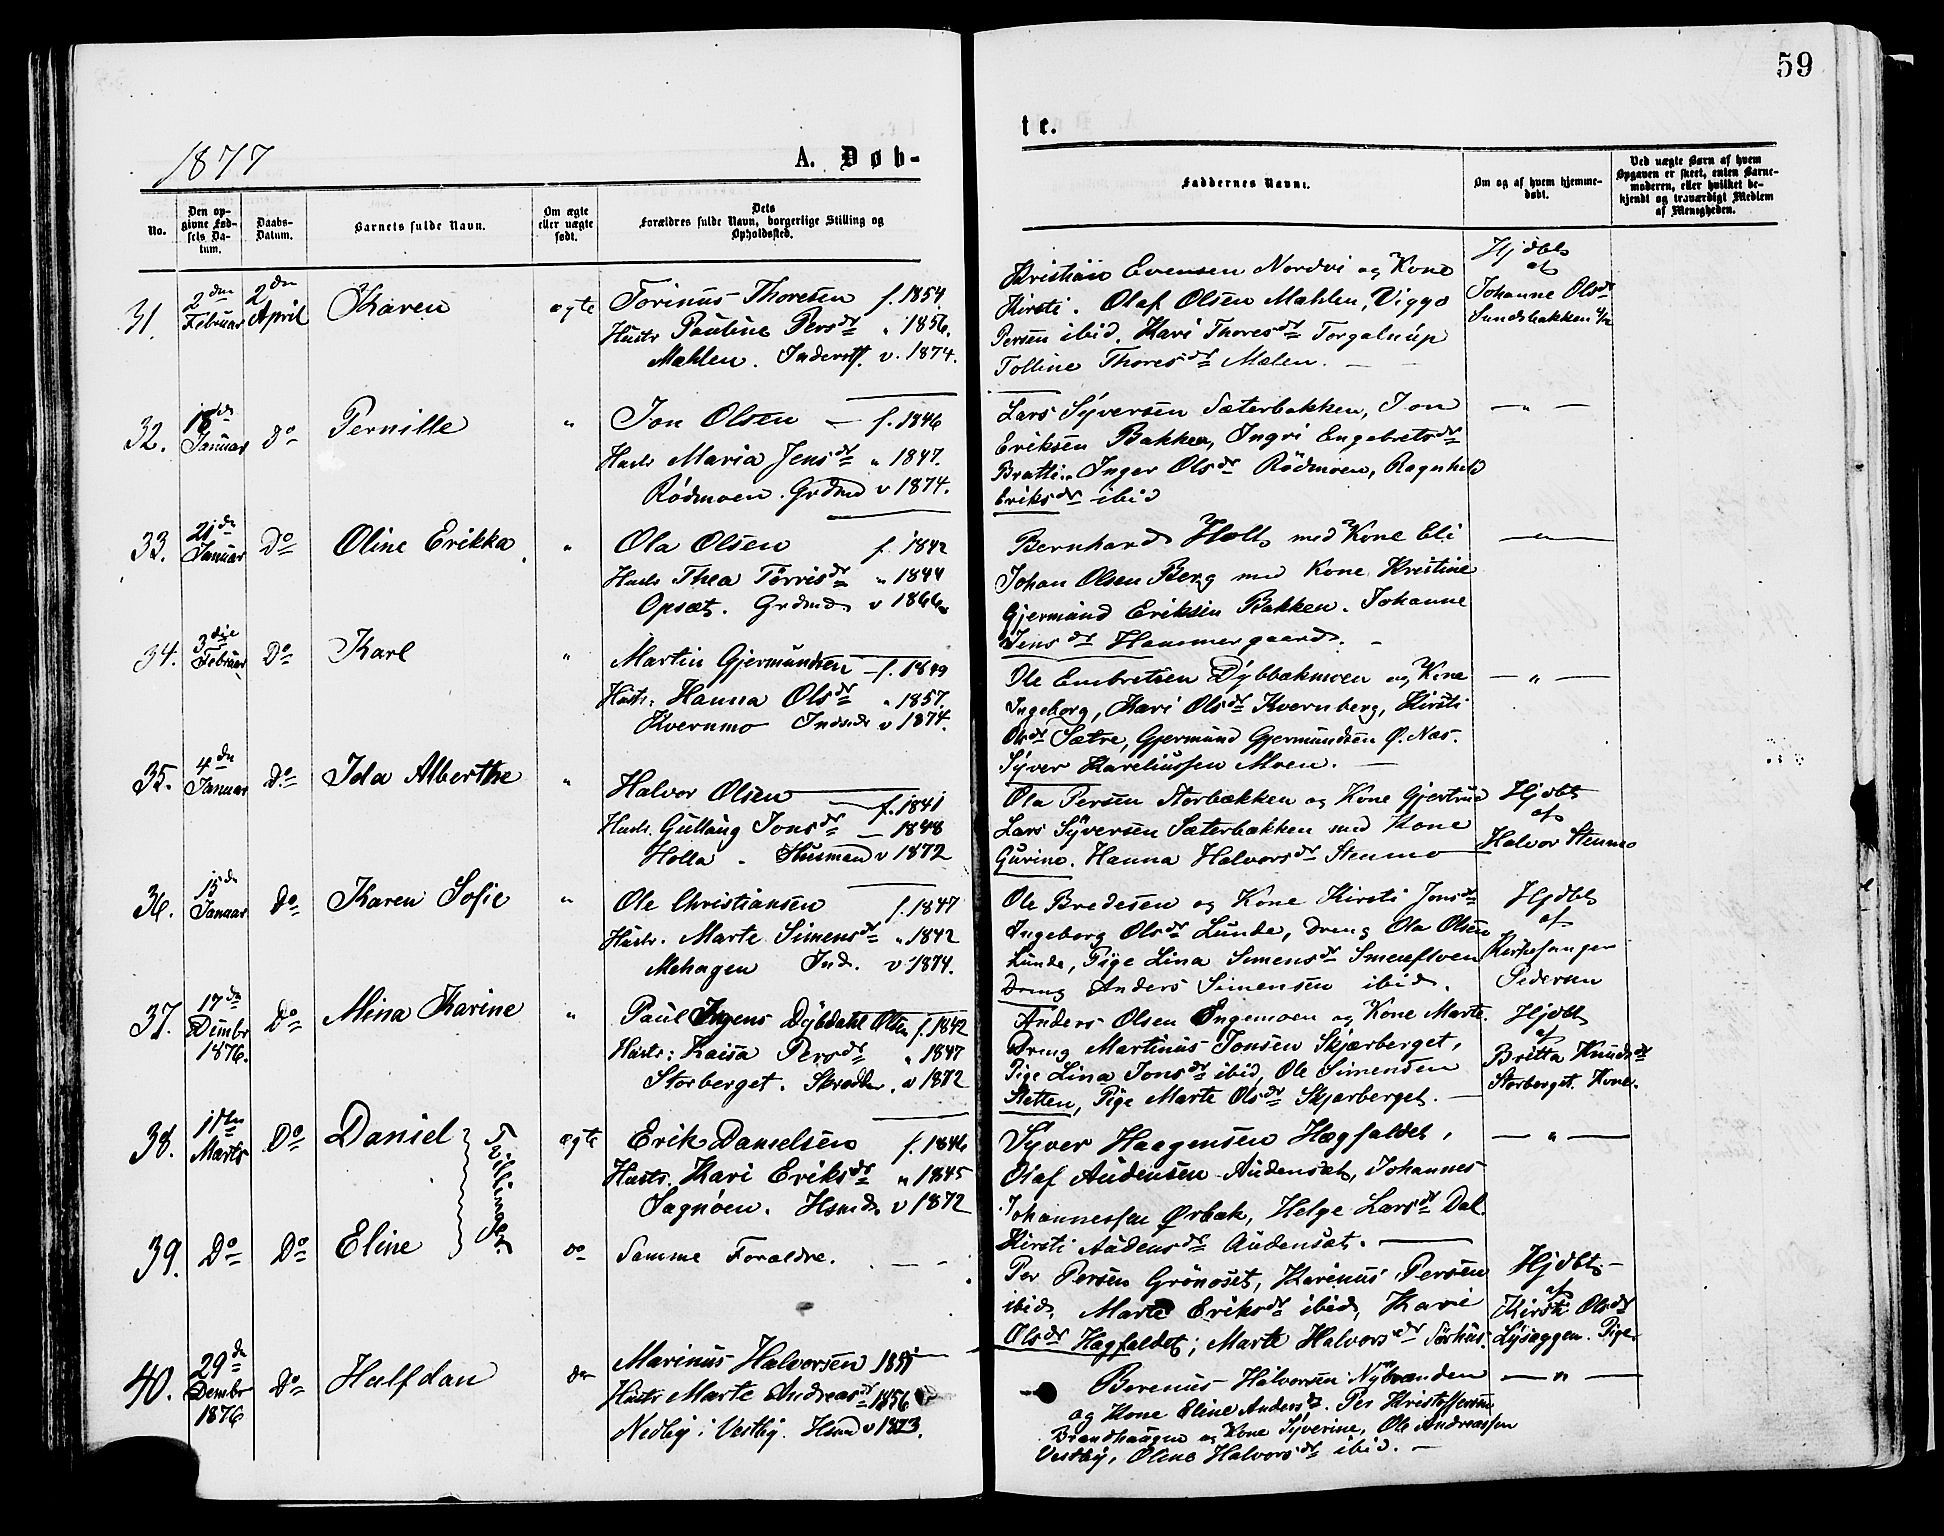 59
1877
A. Døb-
te.
No.
Den op-
givne Fød-
sels Da-
tum.
Daabs-
Datum.
Barnets fulde Navn.
Om ægte
eller uægte
født.
Dets
Forældres fulde Navn, borgerlige Stilling og
Opholdssted.
Faddernes Navne.
Om og af hvem hjemme-
døbt.
Ved uægte Børn af hvem
Opgaven er skeet, enten Barne-
moderen, eller hvilket be-
kjendt og troværdigt Medlem
af Menigheden.
31.
2den
Februar
2den
April
Karen
ægte
Torinus Thoresen f. 1854
Hustr Pauline Persdr " 1856.
Mahlen. Inderst v. 1874.
Kristian Evensen Nordvi og Kone
Kirsti. Olaf Olsen Mahlen, Viggo
Persen ibid. Kari Thoresdr
Tolline Thoresdr Mælen. —
Hjdbt
af
Johanne Olsdr
Sundsbakken
32.
18de
Januar
Do
Pernille
"
Jon Olsen — f. 1846
Hustr Maria Jensdr " 1847.
Rødmoen. Grdmd v 1874.
Lars Syversen Sæterbakken, Jon
Eriksen Bakken, Ingri Engebretsdr
Bratti. Inger Olsdr Rødmoen, Ragnhild
Eriksdr ibid
— " —
33.
21de
Januar
Do
Oline Erikka
"
Ola Olsen f. 1842
Hustr Thea Tørrisdr " 1844
Opsæt. Grdmd v 1866
Bernhard Holt med Kone Eli
Johan Olsen Berg med Kone Kristine
Gjermund Eriksen Bakken. Johanne
Jensdr Hammergaard. —
— " —
34.
3die
Februar
Do
Karl
"
Martin Gjermundsen f. 1849
Hustr: Hanna Olsdr " 1857.
Kvernmo Inds v 1874.
Ole Embretsen Dybbakmoen og Kone
Ingeborg, Kari Olsdr Kvernberg, Kirsti
Olsdr Sætre, Gjermund Gjermundsen Ø. Næs.
Syver Kareliussen Moen. —
— " —
35.
4de
Januar
Do
Ida Alberthe
"
Halvor Olsen f. 1841
Hustr. Gullaug Jonsdr — 1848
Holla. Husmand v 1872
Ola Persen Storbækken og Kone Gjertrud
Lars Syversen Sæterbakken med Kone
Gurine. Hanna Halvorsdr Stenmo
Hjdbt
af
Halvor Stenmo
36.
15de
Januar
Do
Karen Sofie
"
Ole Christiansen f. 1847
Hustr. Marte Simensdr " 1842
Mehagen Ind. v 1874.
Ole Bredesen og Kone Kirsti Jonsdr
Ingeborg Olsdr Lunde, Dreng Ola Olsen
Lunde, Pige Lina Simensdr
Dreng Anders Simensen ibid.
Hjdbt
af
Kirkesanger
Pedersen
37.
17de
Dembr
1876.
Do
Mina Karine
"
Paul Ingens Dybdahl Olsen f. 1842
Hustr: Kaisa Persdr " 1847
Storberget. Skrædder. v 1872
Anders Olsen Engemoen og Kone Marte.
Dreng Martinus Jonsen Skjærberget,
Pige Lina Jonsdr ibid, Ole Simensen
Stetten, Pige Marte Olsdr Skjærberget. —
Hjdbt
af
Britta Knudsdr
Storberget. Kone.
38.
11te
Marts
Do
Daniel
Tvillinger
ægte
Erik Danielsen f. 1846
Hustr. Kari Eriksdr " 1845
Sagnøen. Hsmd v 1872
Syver Haagensen Hagfaldet,
Olaf Audensen Audensæt, Johannes
Johannessen Ørbæk, Helge Larsdr Dal
Kirsti Audensdr Audensæt. —
— " —
39.
Do
Do
Eline
do
Samme Foraldre. — —
Per Persen Grønoset, Karinus Persen
ibid, Marte Eriksdr ibid, Kari
Olsdr Hagfaldet; Marte Halvorsdr Sørhus.
Hjdbt
af
Kirsti Olsdr
Lysaggen. Pige
40.
29de
Dembr
1876
Do
Halfdan
do
Marinus Halvorsen 1851
Hustr Marte Andreasdr 1856
Nedby i Vestby. Hsmd v 1873.
Berenus Halvorsen Nybrænden
og Kone Eline Andersdr. Per Kristoffersen
Brandhaugen og Kone Syverine, Ole Andreassen
Vestby, Oline Halvorsdr ibid. —
— " —